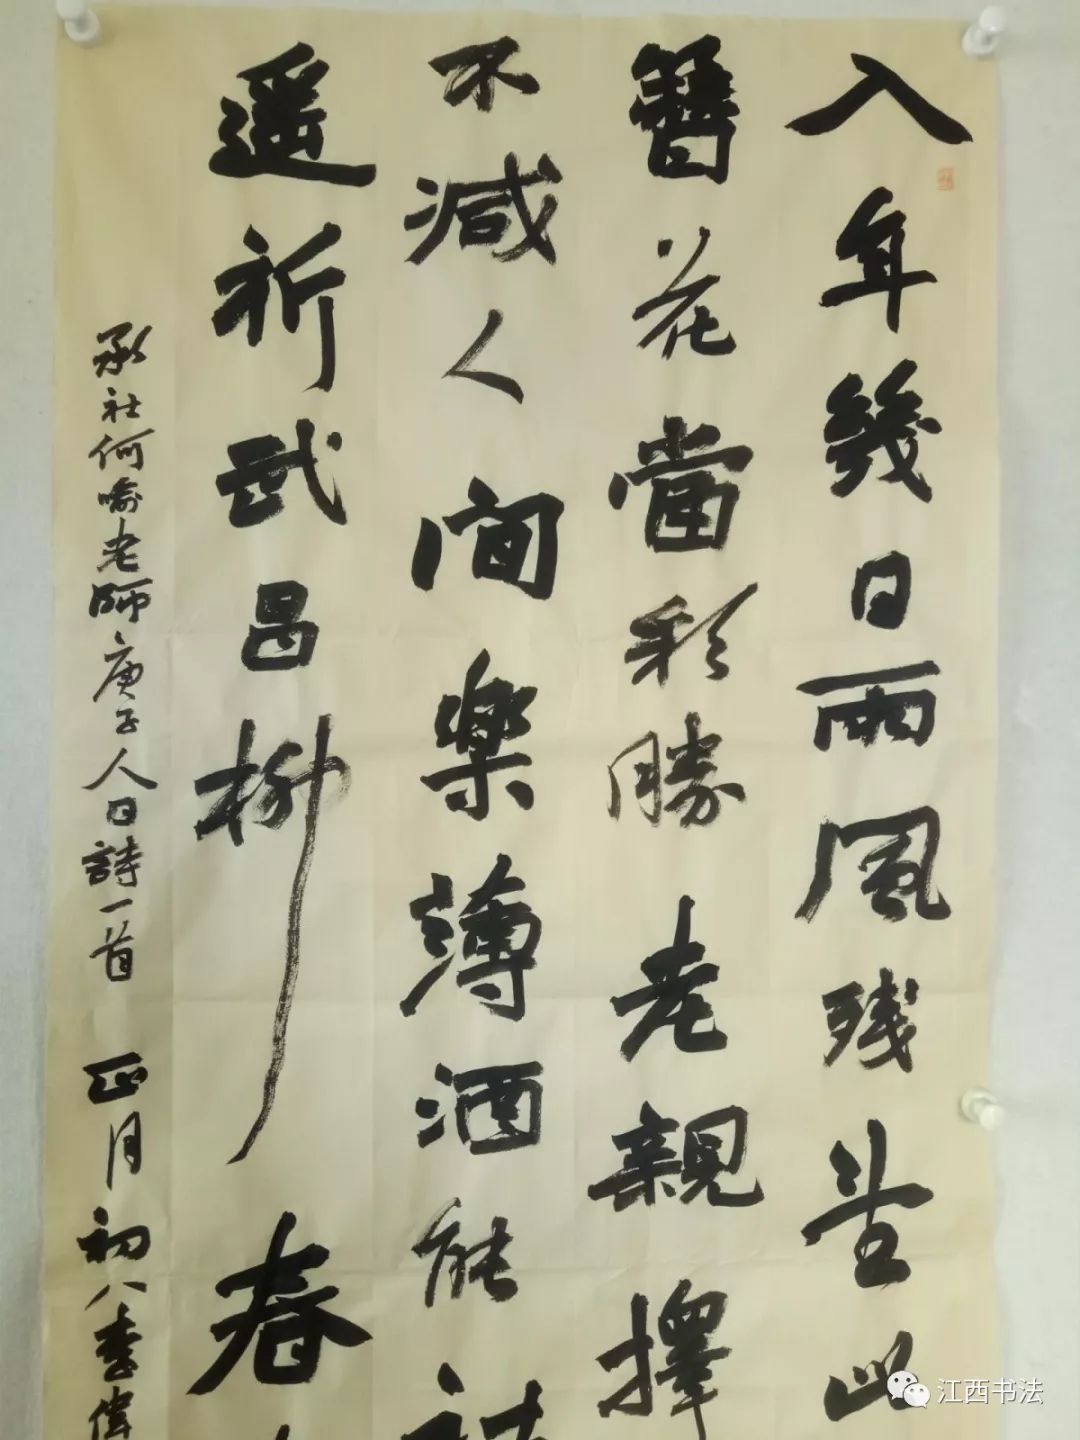 入年幾日雨風残
簪花當彩勝老親擇
不減人間樂薄酒能
遥祈武昌柳春
承社何喻老師庚子人日詩一首 正月初八李偉
江西书法